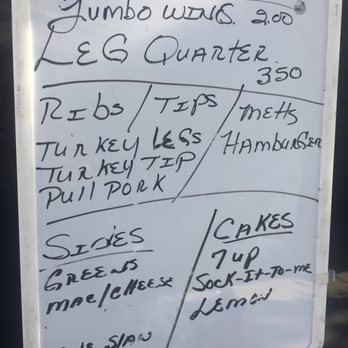 Jumbo WING 2.00
LEG QUARTER
3.50
RIbs / TIPS
TURKEY LEGS
TURKEY TIP
PULL PORK
/ METTS
HAMBURGER
SIDES
GREENS
MAC/CHEESE
SLAW
CAKES
7 UP
SOCK-IT-TO-ME
LEMON